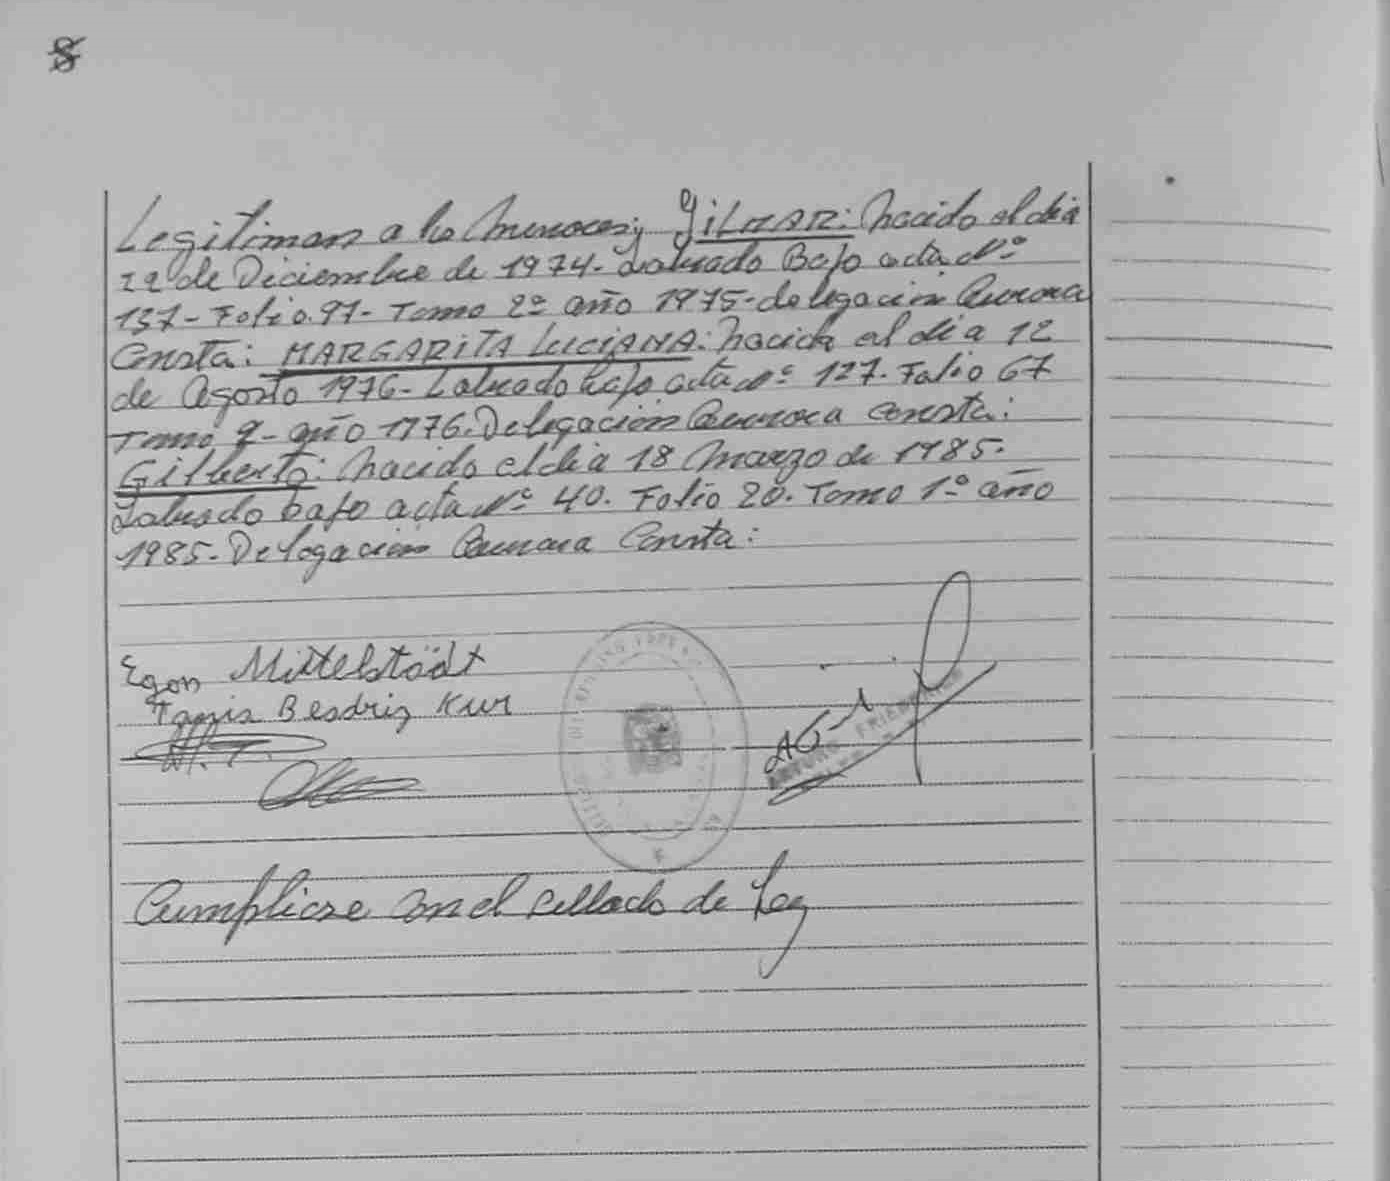 8
Legitiman a los menores; GILMAR: nacido el dia
22 de Diciembre de 1974- Labrado Bajo acta Nº
137- Folio.97- Tomo 2º año 1975-delegacion Aurora
Consta: MARGARITA LUCIANA: nacida el dia 12
de Agosto 1976- Labrado bajo acta Nº 127. Folio 67
Tomo 2- año 1976. Delegación Aurora Consta:
Gilberto: nacido el dia 18 Marzo de 1985.
Labrado bajo acta Nº 40. Folio 20. Tomo 1º año
1985- Delegacion Aurora Consta:
Egon Mittelstädt
Beadriz Kur
ARTURO
Cumplicse con el sellado de Ley